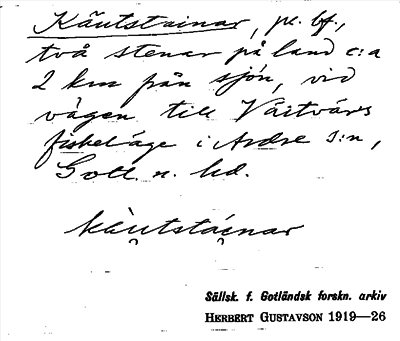 Käutstainar, pl. bf.,
två stenar på land c:a
2 km från sjön, vid
vägen till Vaitvärs
fiskeläge i Ardre s:n,
Gotl. n. hd.
käu̯tstái̯nar
Sällsk. f. Gotländsk forskn. arkiv
HERBERT GUSTAVSON 1919—26